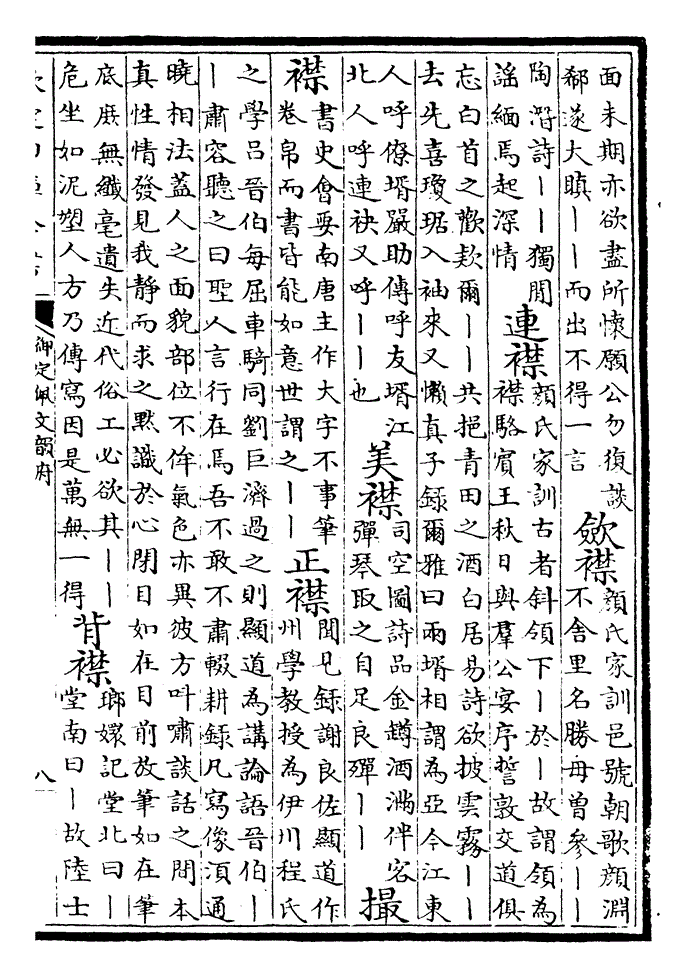 面未期亦欲盡所懷願公勿復談
郗遂大瞋丨丨而出不得一言
歛襟
顔氏家訓邑號朝歌顔淵
不舍里名勝母曾參丨丨
陶潛詩丨丨獨閒
謡緬焉起深情
連襟
顔氏家訓古者斜領下丨於丨故謂領為
襟駱賓王秋日與羣公宴序誓敦交道俱
忘白首之歡欵爾丨丨共挹青田之酒白居易詩欲披雲霧丨丨
去先喜瓊琚入袖來又懶真子録爾雅曰兩壻相謂為亞今江東
人呼僚壻嚴助傳呼友壻江
北人呼連袂又呼丨丨也
美襟
司空圖詩品金罇酒滿伴客
彈琴取之自足良殫丨丨
撮
襟
書史會要南唐主作大字不事筆
卷帛而書皆能如意世謂之丨丨
正襟
聞見録謝良佐顯道作
州學教授為伊川程氏
之學吕晉伯每屈車騎同劉巨濟過之則顯道為講論語晉伯丨
丨肅容聽之曰聖人言行在焉吾不敢不肅輟耕録凡寫像湏通
曉相法蓋人之面貌部位不侔氣色亦異彼方叶嘯談話之間本
真性情發見我静而求之黙識於心閉目如在目前放筆如在筆
底庻無纖毫遺失近代俗工必欲其丨丨
危坐如泥塑人方乃傳寫因是萬無一得
背襟
瑯嬛記堂北曰丨
堂南曰丨故陸士
御定佩文韻府
八